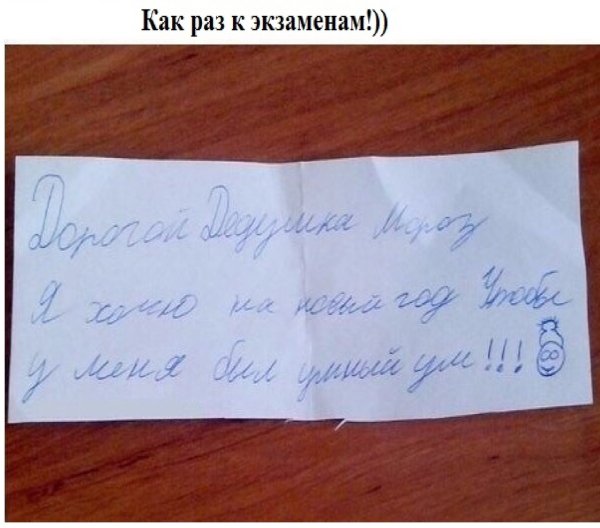 Как раз к экзаменам!))
Дорогой Дедушка Мороз
Я хочю на новый год Чтобы
у меня был умный ум!!!